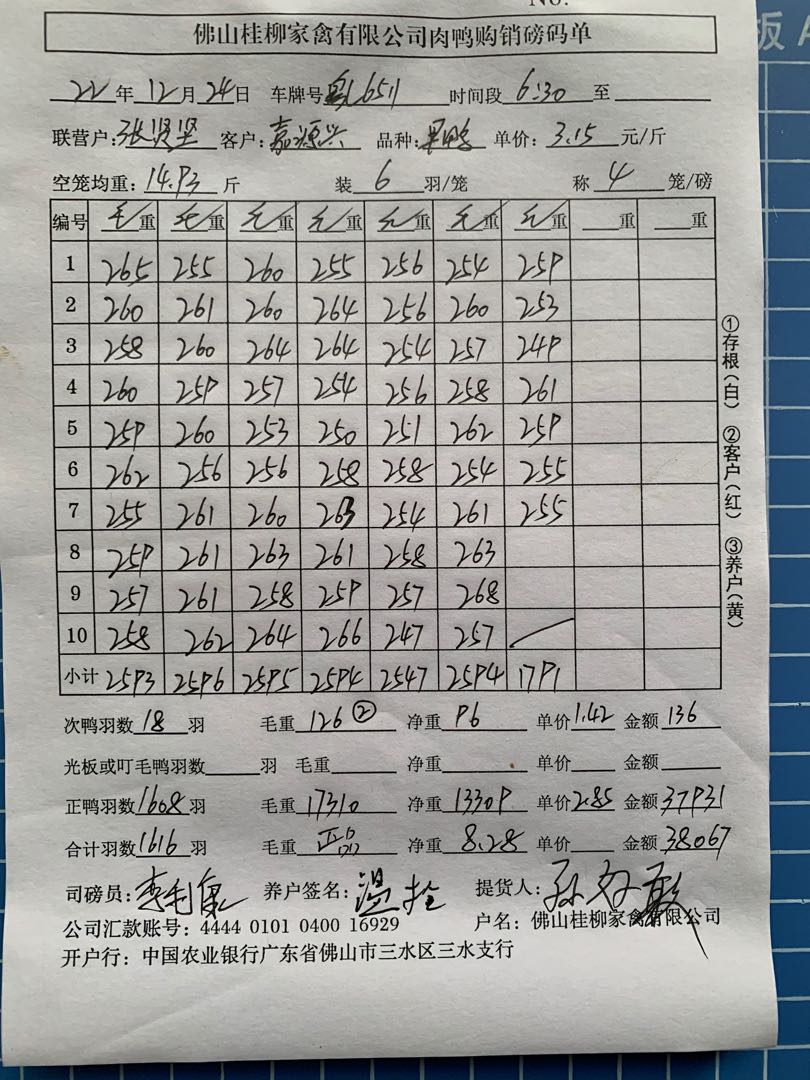 No.
佛山桂柳家禽有限公司肉鸭购销磅码单
22年12月24日 车牌号 粤L6511 时间段 6:30 至
联营户:张贤坚 客户:嘉源兴 品种: 单价:3.15元/斤
空笼均重:14.93斤 装6羽/笼 称4笼/磅
编号 毛重 毛重 毛重 毛重 毛重 毛重 毛重 重 重
1 265 255 260 255 256 254 259
2 260 261 260 264 256 260 253
3 258 260 264 264 254 257 249
4 260 259 257 254 256 258 261
5 259 260 253 250 251 262 259
6 262 256 256 258 258 254 255
7 255 261 260 263 254 261 255
8 259 261 263 261 258 263
9 257 261 258 259 257 268
10 258 262 264 266 247 257
小计 2593 2596 2595 2594 2547 2594 1791
次鸭羽数18羽 毛重126② 净重96 单价1.42 金额136
光板或叮毛鸭羽数 羽 毛重 净重 单价 金额
正鸭羽数1608羽 毛重17310 净重13309 单价2.85 金额37931
合计羽数1616羽 毛重 净重8.28 单价 金额38067
司磅员: 养户签名:温拴 提货人:
公司汇款账号:4444 0101 0400 16929 户名:佛山桂柳家禽有限公司
开户行:中国农业银行广东省佛山市三水区三水支行
①存根(白) ②客户(红) ③养户(黄)
板 A